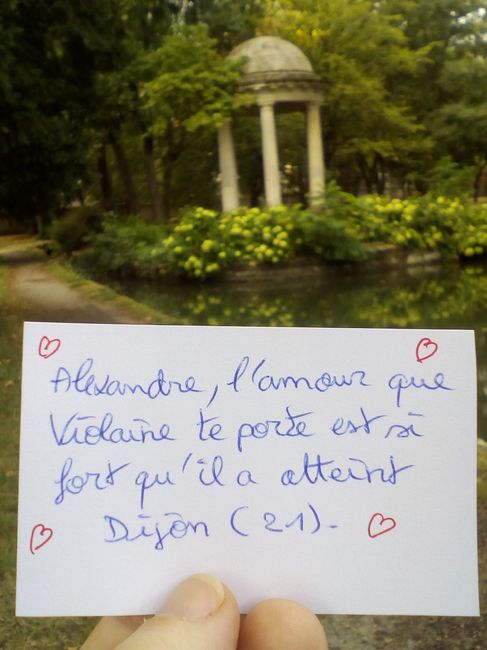 Alexandre, l'amour que
Violaine te porte est si
fort qu'il a atteint
Dijon (21).